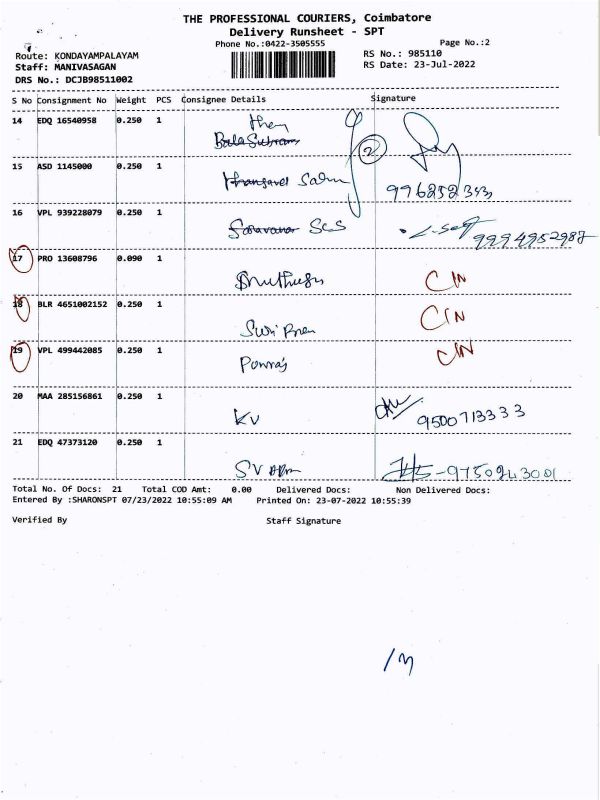 THE PROFESSIONAL COURIERS, Coimbatore
Delivery Runsheet - SPT
Phone No.:0422-3505555 Page No.:2
Route: KONDAYAMPALAYAM RS No.: 985110
Staff: MANIVASAGAN RS Date: 23-Jul-2022
DRS No.: DCJB98511002
S No Consignment No Weight PCS Consignee Details Signature
14 EDQ 16540958 0.250 1
2
15 ASD 1145000 0.250 1
16 VPL 939228079 0.250 1
SCS
9994952987
17 PRO 13608796 0.090 1
CIN
18 BLR 4651002152 0.250 1
CIN
19 VPL 499442085 0.250 1
Ponraj CIN
20 MAA 285156861 0.250 1
KV 9500713333
21 EDQ 47373120 0.250 1
SV
9750243001
Total No. Of Docs: 21 Total COD Amt: 0.00 Delivered Docs: Non Delivered Docs:
Entered By :SHARONSPT 07/23/2022 10:55:09 AM Printed On: 23-07-2022 10:55:39
Verified By Staff Signature